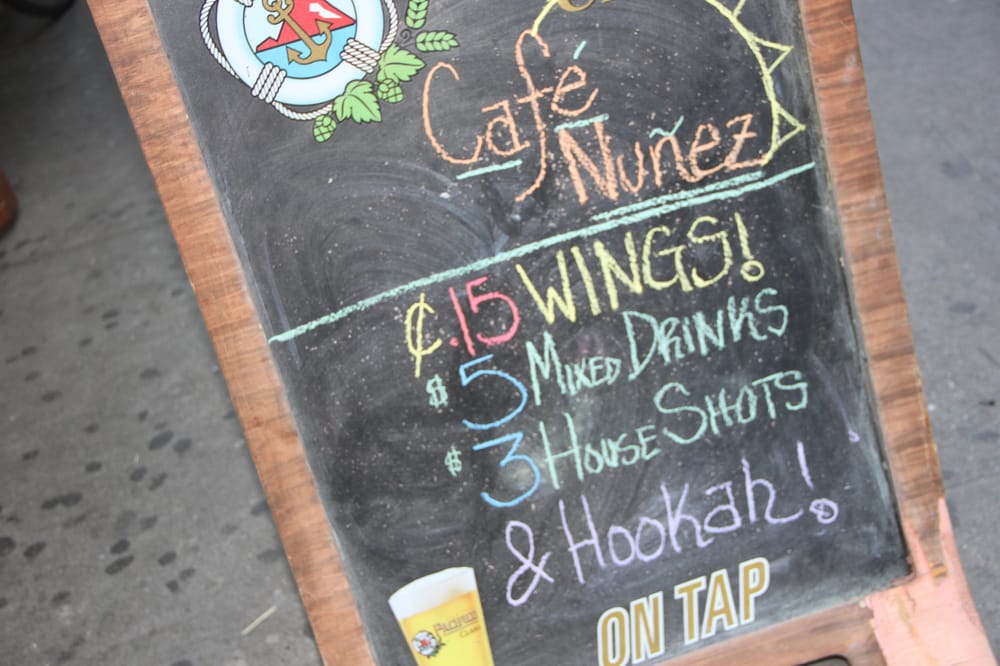 Café
Nuñez
¢.15 WINGS!
$5 MIXED DRINKS
$3 HOUSE SHOTS
& Hookah!
Pacifico
CLARA
ON TAP